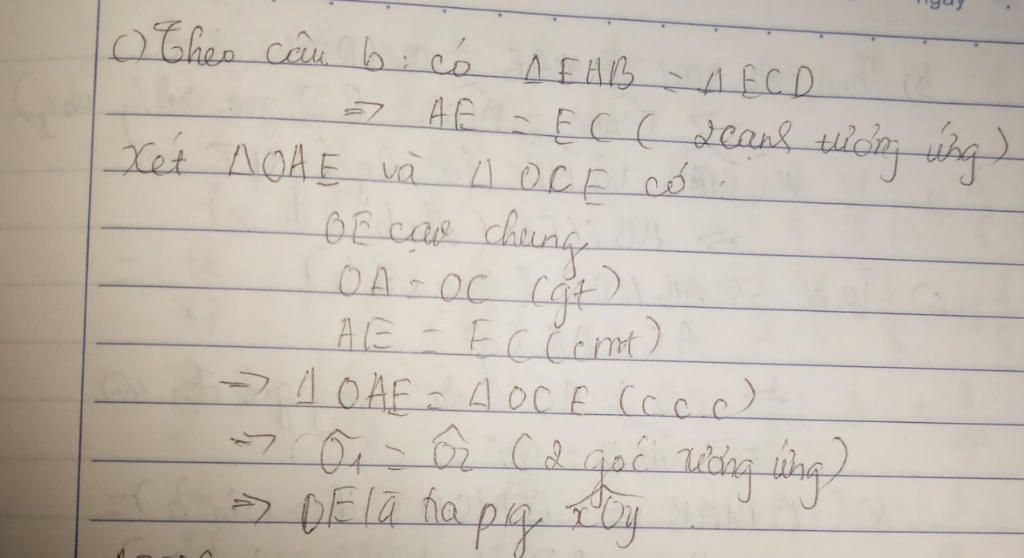 c) Theo câu b: có Δ EAB = Δ ECD
=> AE = EC ( 2 cạnh tương ứng )
Xét Δ OAE và Δ OCE có:
OE cạnh chung
OA = OC (gt)
AE = EC (cmt)
=> Δ OAE = Δ OCE (c c c)
=> Ô1 = Ô2 ( 2 góc tương ứng )
=> OE là tia p/g xÔy